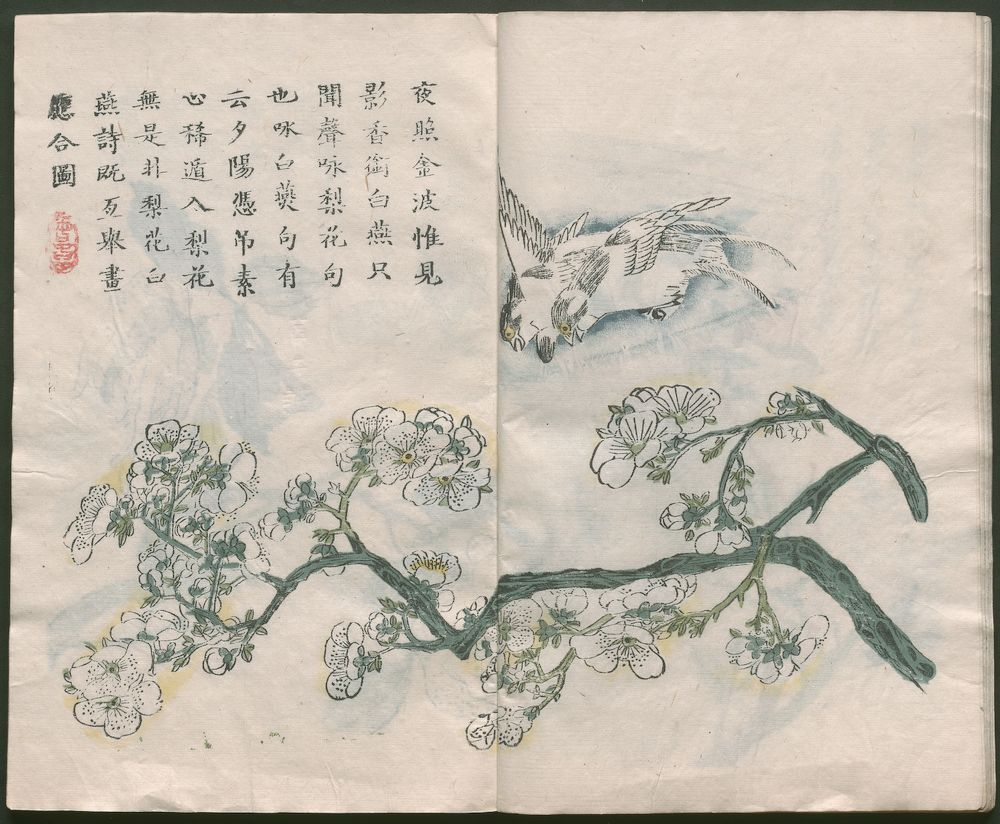 夜照金波惟見
影香銜白燕只
聞聲咏梨花句
也咏白燕句有
云夕陽憑弔素
心稀遁入梨花
無是非梨花白
燕詩既互舉畫
應合圖